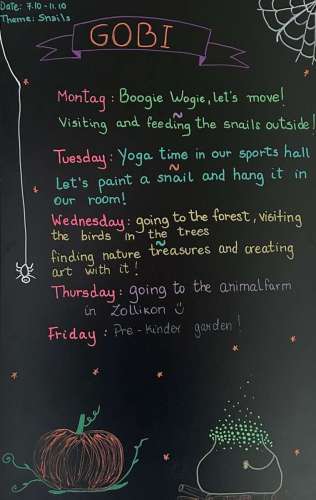 Date: 7.10 - 11.10
Theme: Snails
GOBI
Montag: Boogie Wogie, let's move!
Visiting and feeding the snails outside!
Tuesday: Yoga time in our sports hall
Let's paint a snail and hang it in
our room!
Wednesday: going to the forest, visiting
the birds in the trees
finding nature treasures and creating
art with it!
Thursday: going to the animalfarm
in Zollikon
Friday: Pre-Kinder garden!